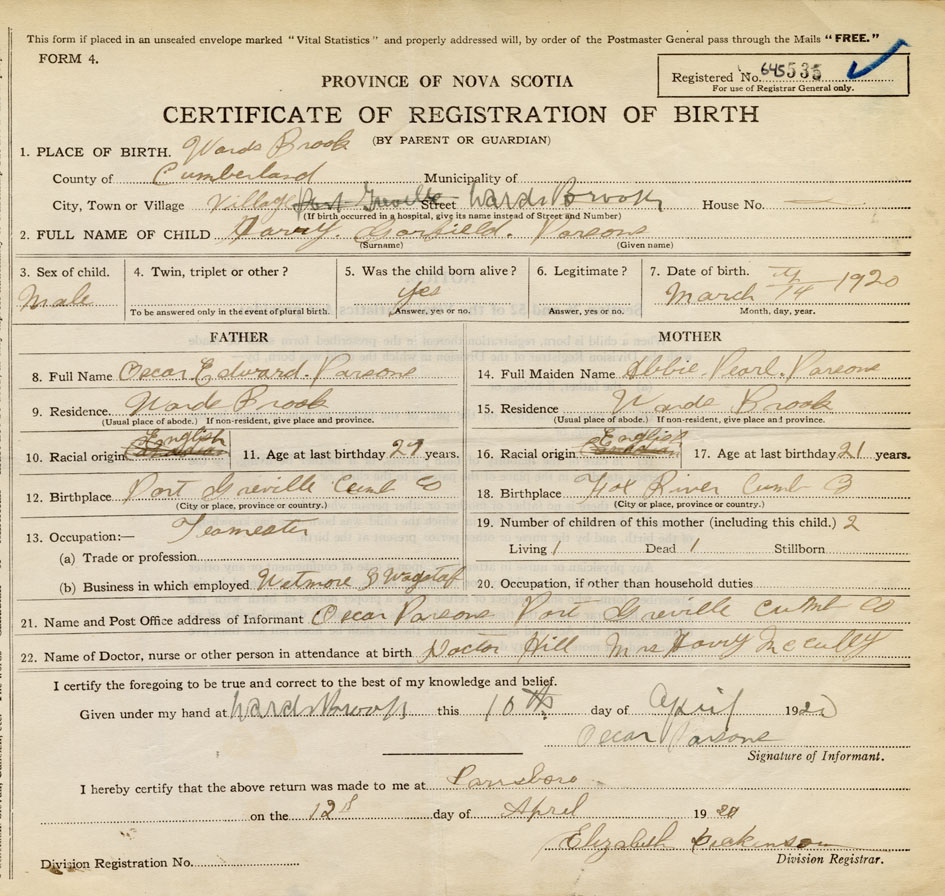 This form if placed in an unsealed envelope marked "Vital Statistics" and properly addressed will, by order of the Postmaster General pass through the Mails "FREE."
FORM 4.
PROVINCE OF NOVA SCOTIA
Registered No. 645535
For use of Registrar General only.
CERTIFICATE OF REGISTRATION OF BIRTH
(BY PARENT OR GUARDIAN)
1. PLACE OF BIRTH. Wards Brook
County of Cumberland Municipality of
City, Town or Village Village Port Greville Street Wards Brook House No. —
(If birth occurred in a hospital, give its name instead of Street and Number)
2. FULL NAME OF CHILD Harvy Garfield. Parsons
(Surname) (Given name)
3. Sex of child. 4. Twin, triplet or other? 5. Was the child born alive? 6. Legitimate? 7. Date of birth.
Male yes March 14 1920
To be answered only in the event of plural birth. Answer, yes or no. Answer, yes or no. Month, day, year.
FATHER MOTHER
8. Full Name Oscar Edward. Parsons 14. Full Maiden Name Abbie. Pearl. Parsons
9. Residence. Wards Brook 15. Residence Wards Brook
(Usual place of abode.) If non-resident, give place and province. (Usual place of abode.) If non-resident, give place and province.
10. Racial origin English Canadian 11. Age at last birthday 27 years. 16. Racial origin English Canadian 17. Age at last birthday 21 years.
12. Birthplace Port Greville Cumb Co 18. Birthplace Fox River Cumb Co
(City or place, province or country.) (City or place, province or country.)
13. Occupation:— Teamester 19. Number of children of this mother (including this child.) 2
(a) Trade or profession Living 1 Dead 1 Stillborn
(b) Business in which employed Wetmore & Wagstaf 20. Occupation, if other than household duties
21. Name and Post Office address of Informant Oscar Parsons Port Greville Cumb Co
22. Name of Doctor, nurse or other person in attendance at birth Doctor Hill Mrs Harry McCully
I certify the foregoing to be true and correct to the best of my knowledge and belief.
Given under my hand at Wards Brook this 10th day of April 1920
Oscar Parsons
Signature of Informant.
I hereby certify that the above return was made to me at Parrsboro
on the 12th day of April 1920
Elizabeth Dickinson
Division Registrar.
Division Registration No.